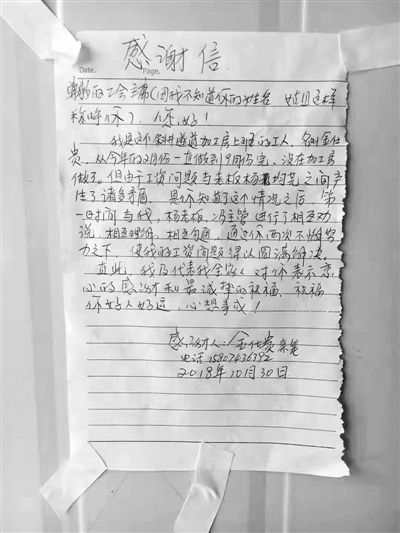 感谢信
Date. Page.
的工会主席(因我不知道你的姓名 这样
称呼你)、你好!
我是这个斜井通道加工房上班的工人,名叫金仕
贵,从今年的2月份一直做到9月份完,没在加工房
做了。但由于工资问题与老板杨 之间产
生了诸多矛盾,是你知道了这个情况之后,第
一时间与我、杨老板、冯主管进行了相互劝
说,相互理解,相互沟通,通过你两次不懈努
力之下,使我的工资问题得以圆满解决。
在此,我及代表我全家人对你表示衷
心的感谢和最诚挚的祝福,祝福
你好人好运,心想事成!
感谢人:金仕贵亲笔
电话15907436392
2018年10月30日